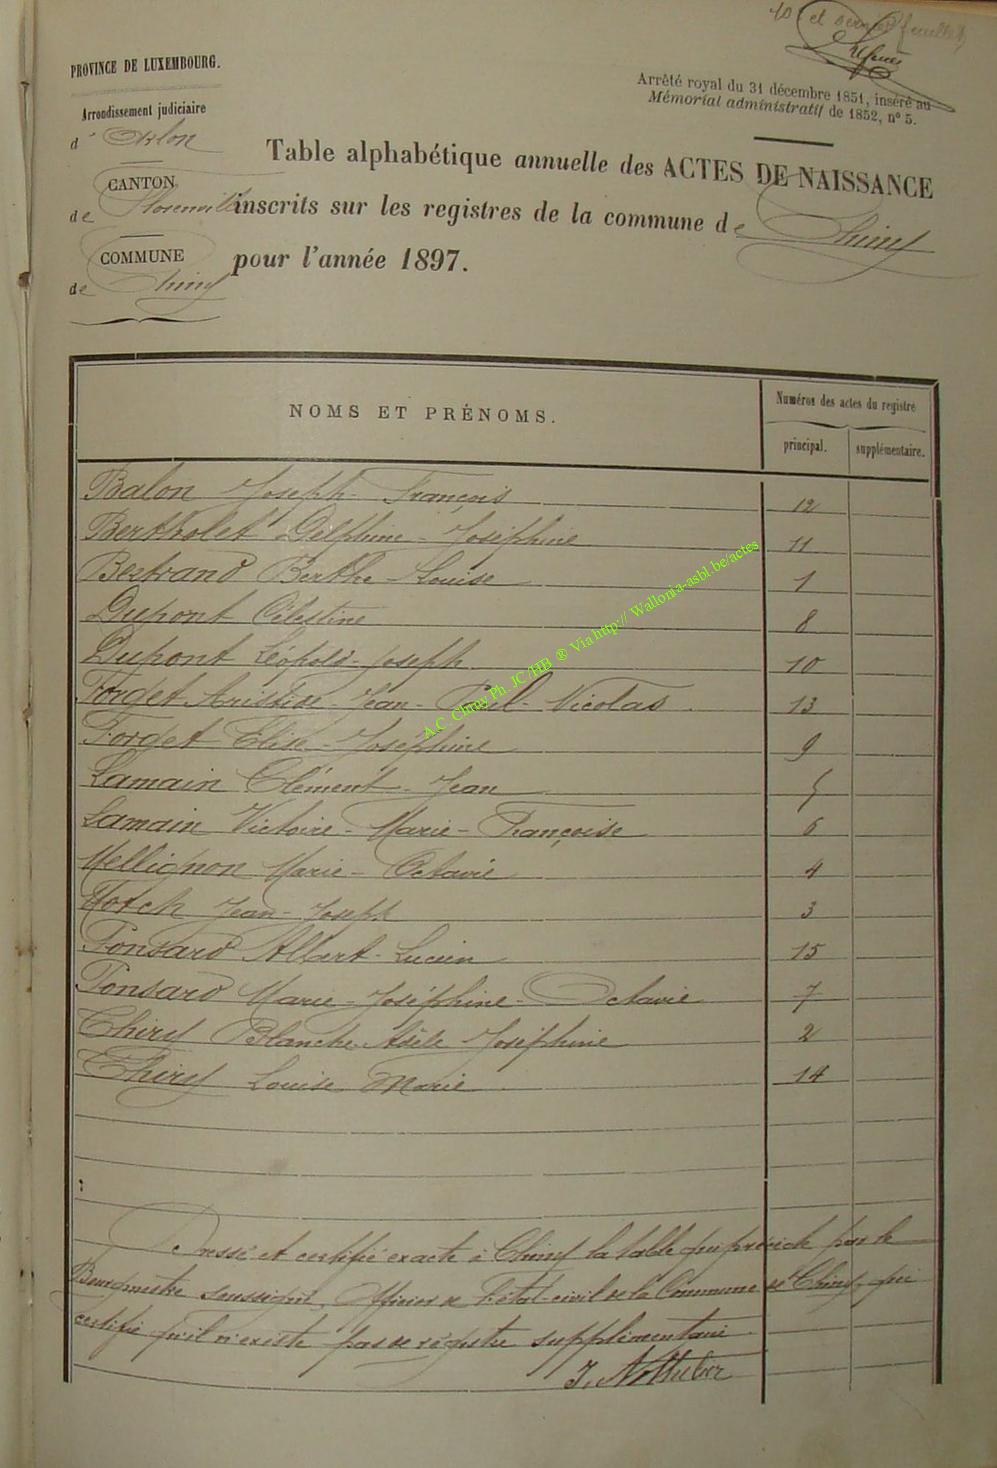 10e et dernier feuillet,
PROVINCE DE LUXEMBOURG.
Arrondissement judiciaire
d' Arlon
CANTON
de Florenville
COMMUNE
de Chiny
Arrêté royal du 31 décembre 1851, inséré au
Mémorial administratif de 1852, n° 5.
Table alphabétique annuelle des ACTES DE NAISSANCE
inscrits sur les registres de la commune de Chiny
pour l'année 1897.
NOMS ET PRÉNOMS.
Numéros des actes du registre
principal. supplémentaire.
Balon Joseph-François 12
Bertholet Delphine-Joséphine 11
Bertrand Berthe-Louise 1
Dupont Célestine 8
Dupont Léopold-Joseph 10
Forget Aristide-Jean-Paul-Nicolas 13
Forget Elise-Joséphine 9
Lamain Clément-Jean 5
Lamain Victoire-Marie-Françoise 6
Mellignon Marie-Octavie 4
Motch Jean-Joseph 3
Ponsard Albert-Lucien 15
Ponsard Marie-Joséphine-Octavie 7
Thiry Blanche Adèle Joséphine 2
Thiry Louise Marie 14
Dressé et certifié exacte à Chiny la table qui précède par le
Bourgmestre soussigné, Officier de l'état-civil de la Commune de Chiny, qui
certifie qu'il n'existe pas de régistre supplémentaire.
A.C. Chiny Ph. JC/HB ® Via http:// Wallonia-asbl.be/actes